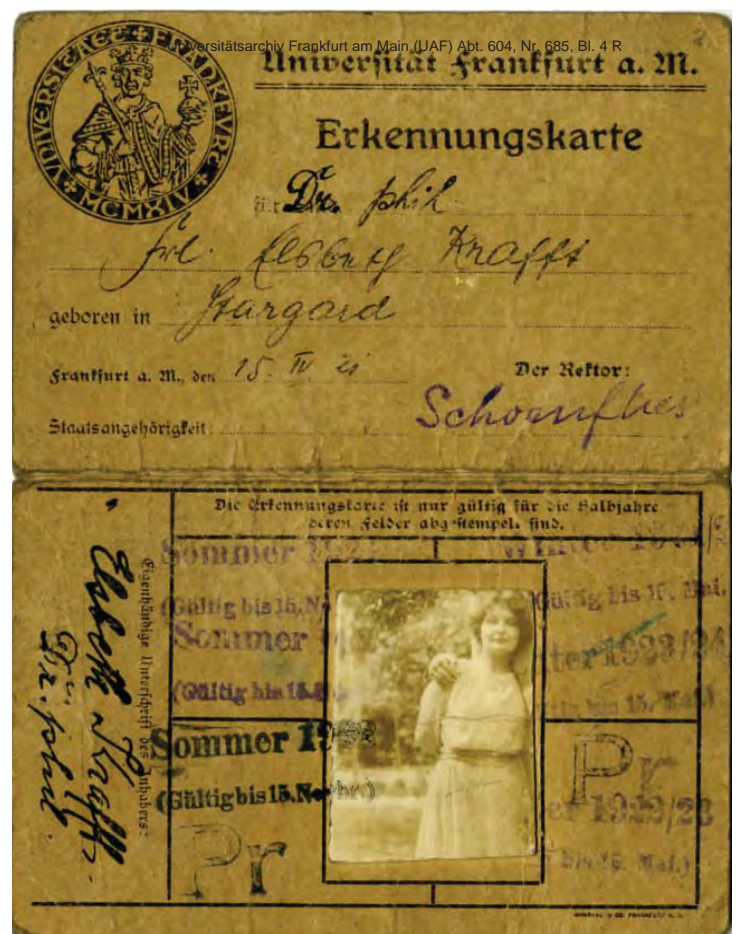 Universitätsarchiv Frankfurt am Main (UAF) Abt. 604, Nr. 685, Bl. 4 R
Universität Frankfurt a. M.
VNIVERSITAET FRANKFVRT
MCMXIV
Erkennungskarte
für Dr. phil
Frl. Elsbeth Krafft
geboren in Stargard
Frankfurt a. M., den 15. IV 21
Der Rektor:
Schoenflies
Staatsangehörigkeit:
Die Erkennungskarte ist nur gültig für die Halbjahre
deren Felder abgestempelt sind.
Sommer
(Gültig bis 15.
Gültig bis 15. Mai.
Sommer
1923/24
(Gültig bis 15.
bis 15. Mai.)
Sommer
(Gültig bis 15. Novbr.)
bis 15. Mai.)
Pr
Pr
Eigenhändige Unterschrift des Inhabers:
Elsbeth Krafft
Dr. phil.